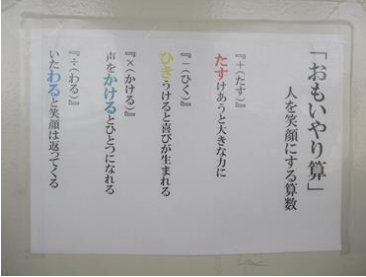 「おもいやり算」
人を笑顔にする算数
『+(たす)』
たすけあうと大きな力に
『-(ひく)』
ひきうけると喜びが生まれる
『×(かける)』
声をかけるとひとつになれる
『÷(わる)』
いたわると笑顔は返ってくる